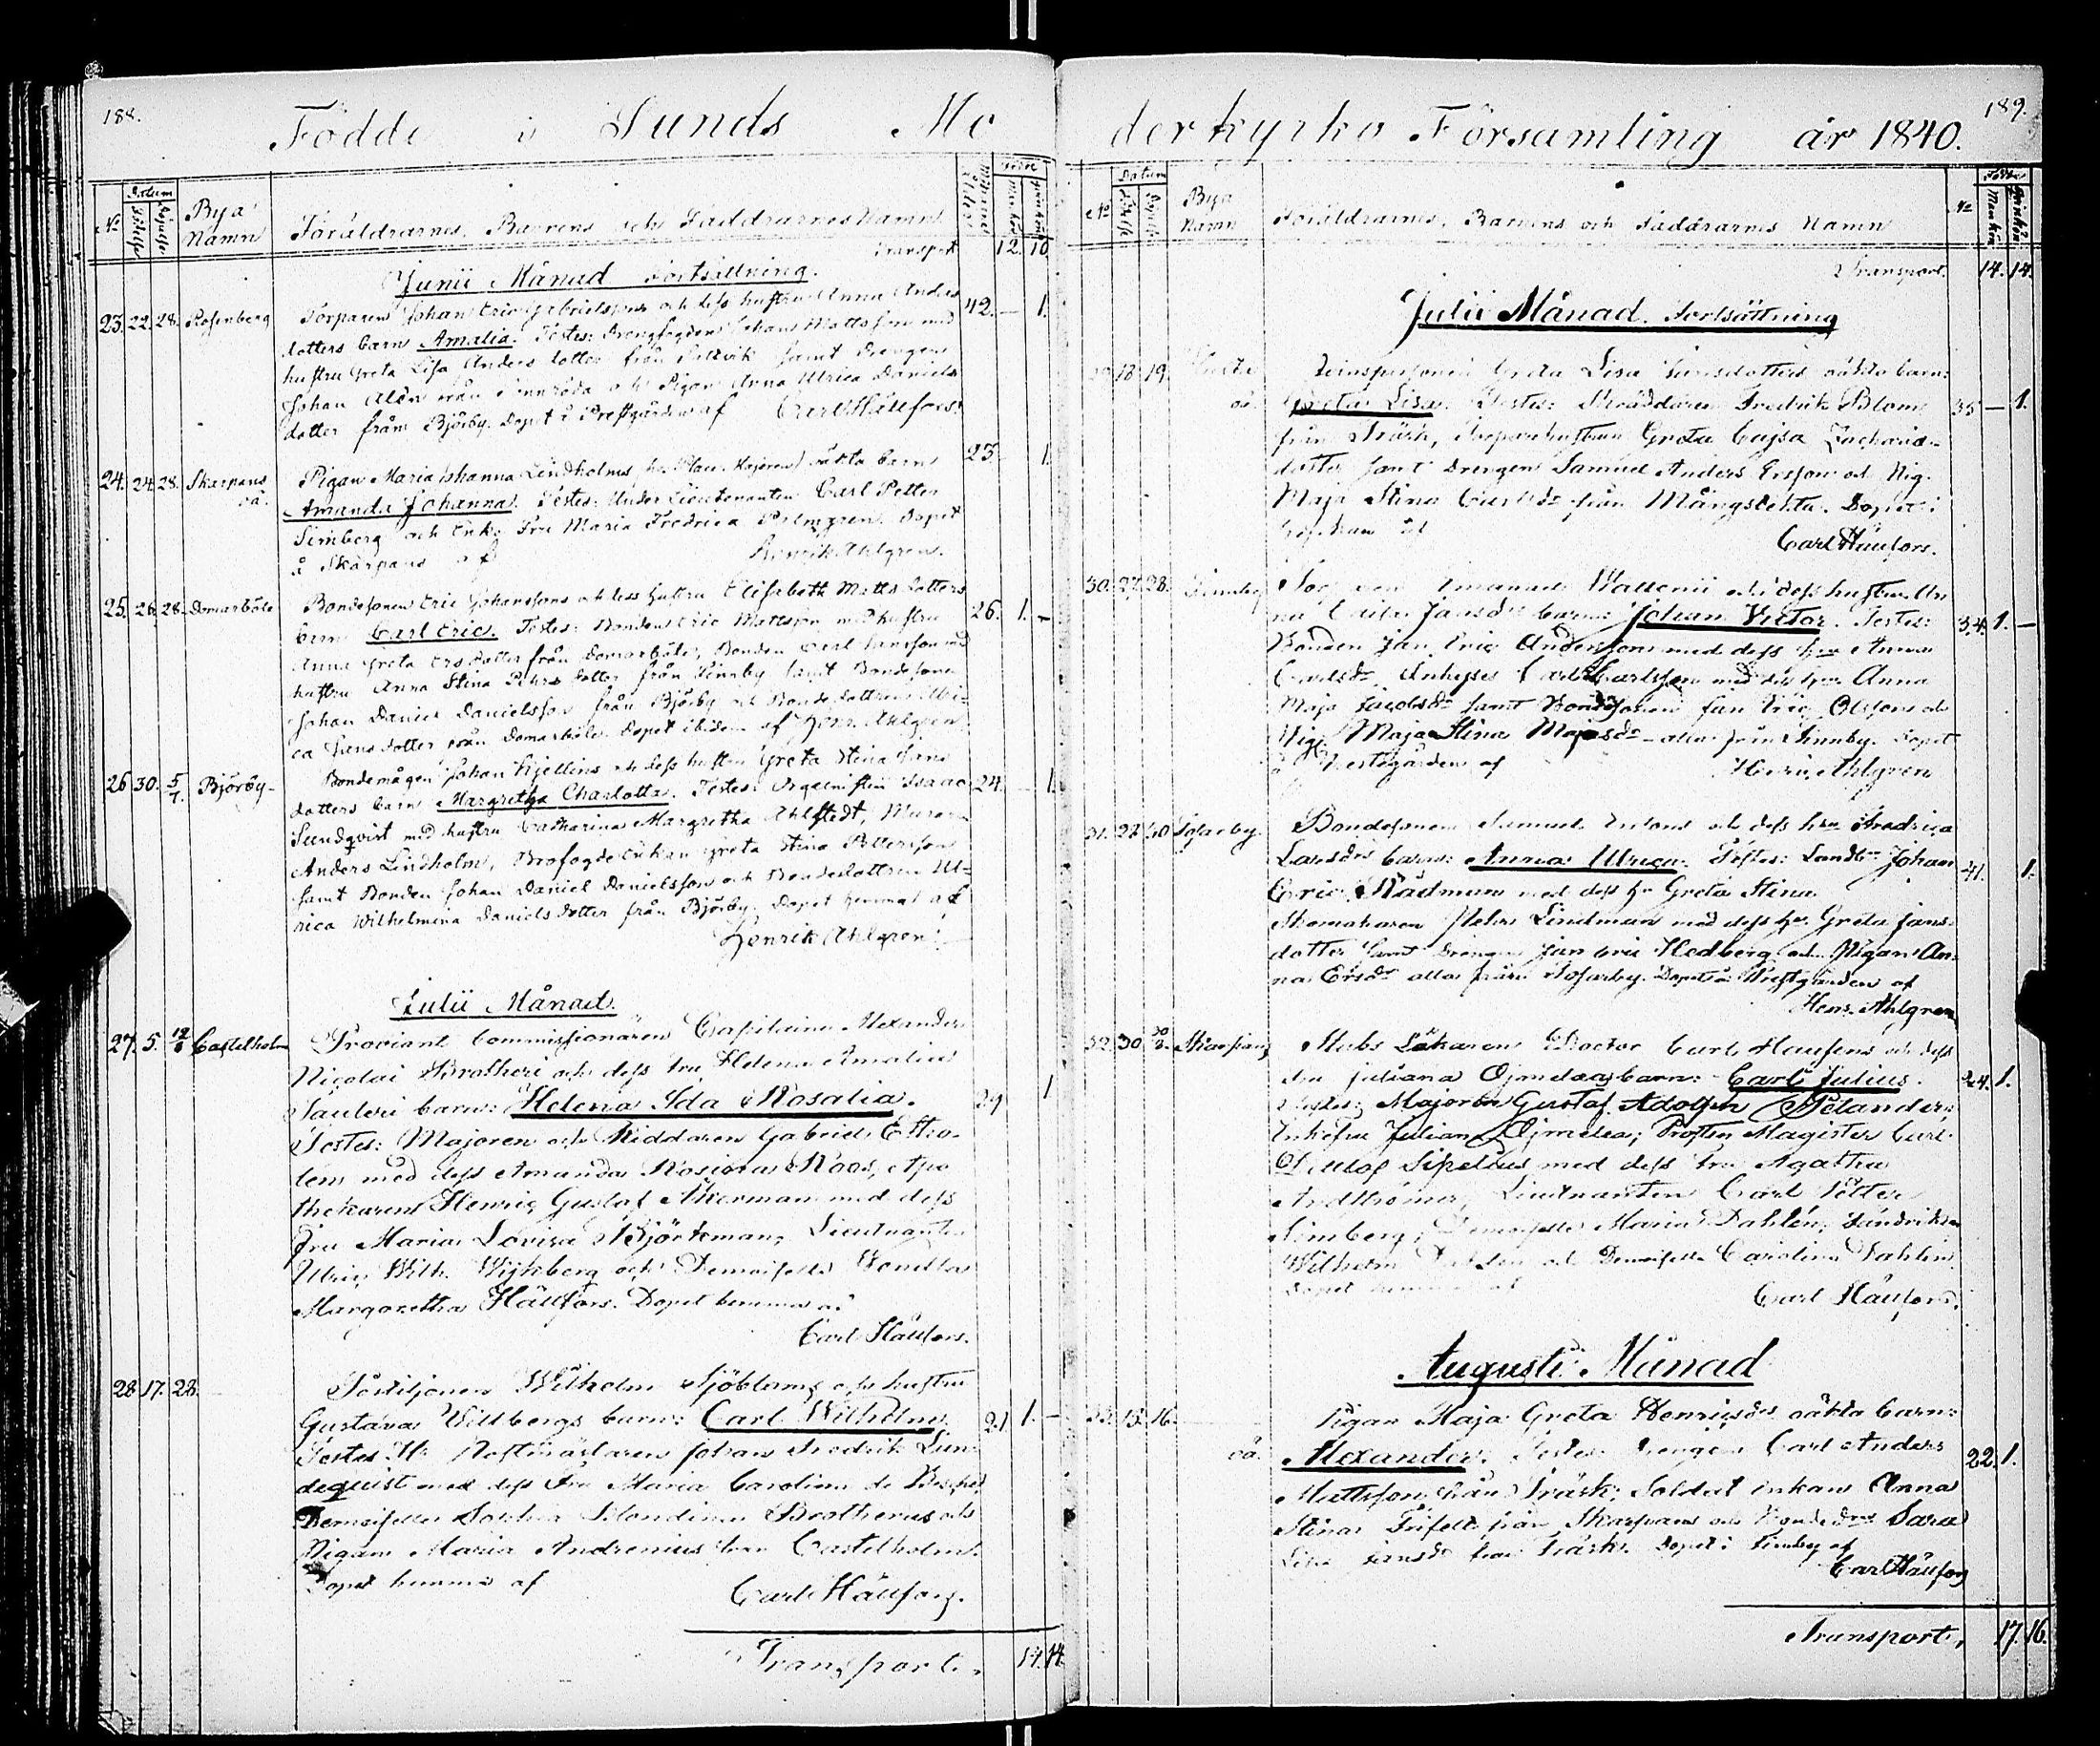 188.
Födde i Sunds Mo
No
Datum
Födelse
Döpelse
Bya Namn
Föräldrarnes, Barnens och Faddrarnes Namn
Mödrarnes ålder
Födde
Mankön
Qvinkön
Transport 12. 10
Junii Månad Fortsättning.
23. 22. 28. Rosenberg Torparen Johan Eric Gabrielssons och dess hustru Anna Anders 42. — 1.
dotters barn Amalia. Testes: Drengfogden Johan Mattsson med
hustru Greta Lisa Andersdotter från samt Drengen
Johan Alén från och Pigan Anna Ulrica Daniels
dotter från Björby. Döpet å Prestgården af Carl Hällfors.
24. 24. 28. Skarpans Pigan Maria Johanna Lindholms oäkta barn 23. 1.
oä. Amanda Johanna. Testes: Under Lieutenanten Carl Petter
Simberg och Enke Fru Maria Fredrica Palmgren. Döpet
å Skarpans af Henrik Ahlgren.
25. 26. 28. Domarböle Bondesonen Eric Johanssons och dess hustru Elisabeth Matts dotters 26. 1. —
barn Carl Eric. Testes: Bonden Eric Mattsson med hustru
Anna Greta Ersdotter från Domarböle, Bonden Carl Jansson med
hustru Anna Stina Pehrsdotter från Finnby samt Bondesonen
Johan Daniel Danielsson från Björby och Bondedottren Ulri-
ca Jansdotter från Domarböle. Döpet ibidem af Henr. Ahlgren
26 30. 5/7. Björby Bondemågen Johan Kjellins och dess hustru Greta Stina Jans 24. 1.
dotters barn Margretha Charlotta. Testes: Orgelnisten Isaac
Sundqvist med hustru Catharina Margretha Ahlstedt, Muraren
Anders Lindholm, Brofogde Enkan Greta Stina Pettersson
samt Bonden Johan Daniel Danielsson och Bondedottren Ul-
rica Wilhelmina Danielsdotter från Björby. Döpet hemma af
Henrik Ahlgren.
Julii Månad.
27. 5. Castelholm Proviant Commissionären Capitaine Alexander
Nicolai Brotheri och dess Fru Helena Amalia
barn: Helena Ida Rosalia. 29 1
Testes: Majoren och Riddaren Gabriel
med dess Amanda Rosina Roos, Apo
thekaren Henric Gustaf Åkerman med dess
Fru Maria Lovisa Björkman, Lieutnanten
Ulric Wilh. Wijkberg och Demoiselle Vendla
Margaretha Hällfors. Döpet hemma af
Carl Hällfors.
28 17. 28. Postiljonen Wilhelm Sjöbloms och hustru
Gustava Willbergs barn: Carl Wilhelm 21 1. —
Testes: Hr Postmästaren Johan Fredrik Lin-
deqvist med dess Fru Maria Carolina de Besche,
Demoiselle Sophia Blondina Brotherus och
Pigan Maria Andrenius från Castelholm.
Döpet hemma af Carl Hällfors.
Transport. 14. 14.
189.
derkyrko Församling år 1840.
No
Datum
Bya Namn
Föräldrarnes, Barnens och Faddrarnes Namn
Födde
Mankön
Qvinkön
Transport. 14. 14.
Julii Månad. Fortsättning
18. 19. Greta Lisa Jansdotters oäkta barn:
oä. Greta Lisa. Testes: Skräddaren Fredrik Blom 35 — 1.
från Träsk, Torparehustrun Greta Cajsa Zacharia-
dotter samt Drengen Samuel Anders Ersson och Pig.
Maja Stina Carlsdr från Mångstekta. Döpet i
af
Carl Hällfors.
30. 27. 28. Finnby Emanuel Wallenii och dess hustru An
na Cajsa Jansdr barn: Johan Victor. Testes: 34. 1. —
Bonden Jan Eric Andersson med dess hu Anna
Carlsdr, Inhyses Carl Carlsson med dess hu Anna
Maja Jacobsdr samt Bondesonen Jan Eric Olsson och
Pig. Maja Stina Majasdr alla från Finnby. Döpet
å Prestgården af Henric Ahlgren
31. 27 30 Tosarby Bondesonen Samuel och dess hu Fredrica
Larsdrs barn: Anna Ulrica. Testes: Landb. Johan 41. 1.
Eric Kästman med dess hu Greta Stina
Skomakaren Pehr Lindman med dess hu Greta Jans-
dotter samt Drengen Jan Eric Hedberg och Pigan An-
na Ersdr alla från Tosarby. Döpet å Prestgården af
Henr. Ahlgren
32. 30 Skarpans Stabs Läkaren Doctor Carl och dess
Fru Juliana Öjmelaei barn: Carl Julius. 24. 1.
Testes: Majoren Gustaf Adolph
Enkefru Juliana Öjmelaea; Prosten Magister Carl
Sipelius med dess Fru Agatha
Lieutnanten Carl Petter
Simberg, Demoiselle Maria Dahlén, Studeranden
Wilhelm och Demoiselle Carolina Dahlén
Döpet hemma af Carl Hällfors.
Augusti Månad
33. 15. 16. Pigan Maja Greta Henricsdrs oäkta barn:
oä. Alexander. Testes: Drengen Carl Anders 22. 1.
Mattsson från Träsk, Soldat Enkan Anna
Stina från Skarpans och Bondedr Sara
Lisa Jansdr från Träsk. Döpet i Finnby af
Carl Hällfors
Transport, 17. 16.